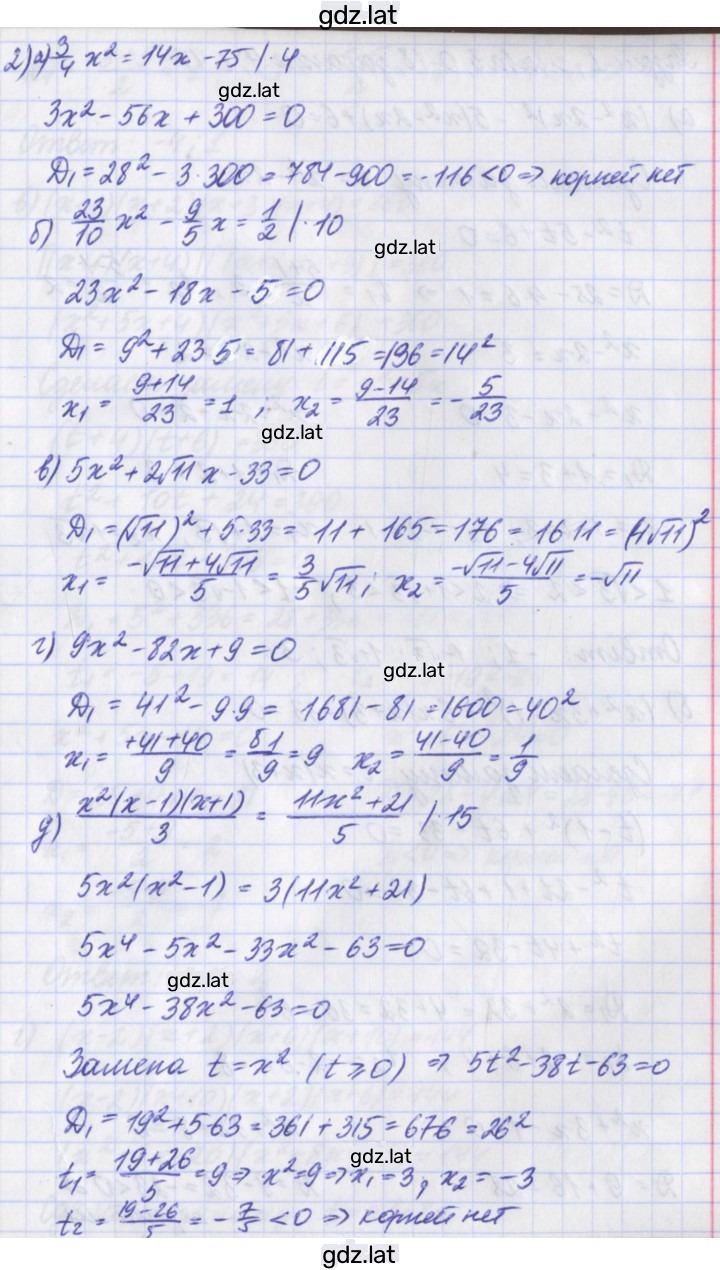 gdz.lat
2) а) 3/4 x² = 14x - 75 | · 4
gdz.lat
3x² - 56x + 300 = 0
D₁ = 28² - 3·300 = 784 - 900 = -116 < 0 ⇒ корней нет
б) 23/10 x² - 9/5 x = 1/2 | · 10
gdz.lat
23x² - 18x - 5 = 0
D₁ = 9² + 23·5 = 81 + 115 = 196 = 14²
x₁ = (9+14)/23 = 1 , x₂ = (9-14)/23 = - 5/23
gdz.lat
в) 5x² + 2√11 x - 33 = 0
D₁ = (√11)² + 5·33 = 11 + 165 = 176 = 16·11 = (4√11)²
x₁ = (-√11 + 4√11)/5 = 3/5 √11 ; x₂ = (-√11 - 4√11)/5 = -√11
г) 9x² - 82x + 9 = 0
gdz.lat
D₁ = 41² - 9·9 = 1681 - 81 = 1600 = 40²
x₁ = (+41+40)/9 = 81/9 = 9 x₂ = (41-40)/9 = 1/9
д) x²(x-1)(x+1)/3 = (11x² + 21)/5 | · 15
5x²(x² - 1) = 3(11x² + 21)
5x⁴ - 5x² - 33x² - 63 = 0
gdz.lat
5x⁴ - 38x² - 63 = 0
Замена t = x² (t ≥ 0) ⇒ 5t² - 38t - 63 = 0
D₁ = 19² + 5·63 = 361 + 315 = 676 = 26²
gdz.lat
t₁ = (19+26)/5 = 9 ⇒ x² = 9 ⇒ x₁ = 3, x₂ = -3
t₂ = (19-26)/5 = - 7/5 < 0 ⇒ корней нет
gdz.lat